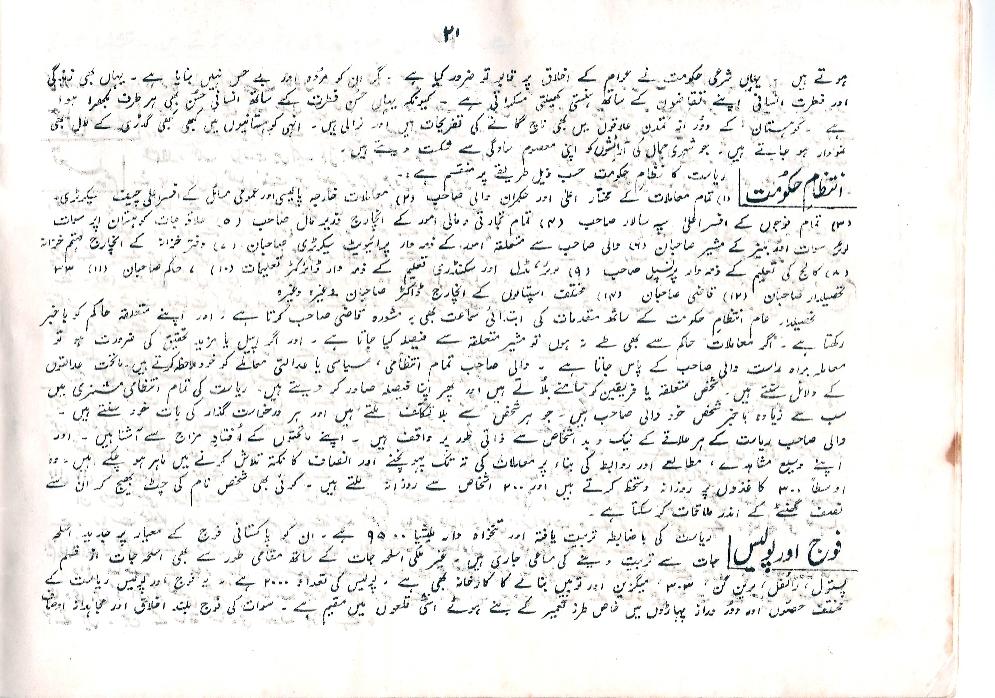 ۲۱
ہوتے ہیں ۔ یہاں شرعی حکومت نے عوام کے اخلاق پر قابو تو ضرور کیا ہے ۔ مگر ان کو مردہ اور بے حس نہیں بنایا ہے ۔ یہاں بھی زندگی
اور فطرت انسانی اپنے تقاضوں کے ساتھ ہنستی کھیلتی مسکراتی ہے ۔ کیونکہ یہاں حسن فطرت کے ساتھ انسانی حسن بھی ہر طرف بکھرا ہوا
ہے ۔ کوہستان کے دور افتادہ تمدن علاقوں میں بھی ناچ گانے کی تفریحات ہیں اور نرالی ہیں ۔ انہی کوہستانیوں میں کبھی کبھی گدڑی کے لال بھی
نمودار ہو جاتے ہیں ۔ جو شہری جمال کی آرائشوں کو اپنی معصوم سادگی سے شکست دیتے ہیں ۔
انتظام حکومت
ریاست کا نظام حکومت حسب ذیل طریقے پر منقسم ہے :۔
(۱) تمام معاملات کے مختار اعلیٰ اور حکمران والی صاحب (۲) معاملات خارجہ پالیسی اور عمومی مسائل کے افسر اعلیٰ چیف سیکرٹری۔
(۳) تمام فوجوں کے افسر اعلیٰ سپہ سالار صاحب (۴) تمام تجارتی و مالی امور کے انچارج وزیر مال صاحب (۵) علاقہ جات کوہستان اپر سوات
لوئر سوات اور بنیر کے مشیر صاحبان (۶) والی صاحب سے متعلقہ امور کے ذمہ دار پرائیویٹ سیکرٹری صاحبان (۷) دفتر خزانہ کے انچارج مہتمم خزانہ
(۸) کالج کی تعلیم کے ذمہ دار پرنسپل صاحب (۹) لوئر مڈل اور سکنڈری تعلیم کے ذمہ دار ڈائرکٹر تعلیمات (۱۰) ۷ حاکم صاحبان (۱۱) ۳۳
تحصیلدار صاحبان (۱۲) قاضی صاحبان (۱۳) مختلف اسپتالوں کے انچارج ڈاکٹر صاحبان وغیرہ وغیرہ
تحصیلدار عام انتظام حکومت کے ساتھ مقدمات کی ابتدائی سماعت بھی بہ مشورہ قاضی صاحب کرتا ہے ۔ اور اپنے متعلقہ حاکم کو باخبر
رکھتا ہے ۔ اگر معاملات حاکم سے بھی طے نہ ہوں تو مشیر متعلقہ سے فیصلہ کیا جاتا ہے ۔ اور اگر اپیل یا مزید تحقیق کی ضرورت ہو تو
معاملہ براہ راست والی صاحب کے پاس جاتا ہے ۔ والی صاحب تمام انتظامی ، سیاسی یا عدالتی معاملے کو خود ملاحظہ کرتے ہیں ۔ ماتحت عدالتوں
کے دلائل سنتے ہیں ۔ شخص متعلقہ یا فریقین کو سامنے بلاتے ہیں اور پھر اپنا فیصلہ صادر کر دیتے ہیں ۔ ریاست کی تمام انتظامی مشنری میں
سب سے زیادہ باخبر شخص خود والی صاحب ہیں ۔ جو ہر شخص سے بلا تکلف ملتے ہیں اور ہر درخواست گذار کی بات خود سنتے ہیں ۔
والی صاحب ریاست کے ہر علاقے کے نیک و بد اشخاص سے ذاتی طور پر واقف ہیں ۔ اپنے ماتحتوں کے افتاد مزاج سے آشنا ہیں ۔ اور
اپنے وسیع مشاہدے ، مطالعے اور روابط کی بناء پر معاملات کی تہ تک پہونچنے اور انصاف کا نکتہ تلاش کرنے میں ماہر ہو چکے ہیں ۔ وہ
اوسطاً ۳۰۰ کاغذوں پر روزانہ دستخط کرتے ہیں اور ۲۰۰ اشخاص سے روزانہ ملتے ہیں ۔ کوئی بھی شخص نام کی چٹ بھیج کر ان سے
نصف گھنٹے کے اندر ملاقات کر سکتا ہے ۔
فوج اور پولیس
ریاست کی باضابطہ تربیت یافتہ اور تنخواہ دار ملیشیا ۹۵۰۰ ہے ۔ ان کو پاکستانی فوج کے معیار پر جدید اسلحہ
جات سے تربیت دینے کی مساعی جاری ہیں ۔ غیر ملکی اسلحہ جات کے ساتھ مقامی طور سے بھی اسلحہ جات از قسم
پستول ، رائفل ، برین گن ، ۳۰۳ میگزین اور توپیں بنانے کا کارخانہ بھی ہے ۔ پولیس کی تعداد ۲۰۰۰ ہے ۔ یہ فوج اور پولیس ریاست کے
مختلف حصوں اور دور دراز پہاڑوں میں خاص طرز تعمیر کے بنے ہوئے قلعوں میں مقیم ہے ۔ سوات کی فوج بلند اخلاق اور مجاہدانہ اوصاف